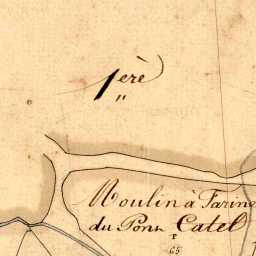 1erè
"
Moulin à Farin
du Pont Catel
F
65